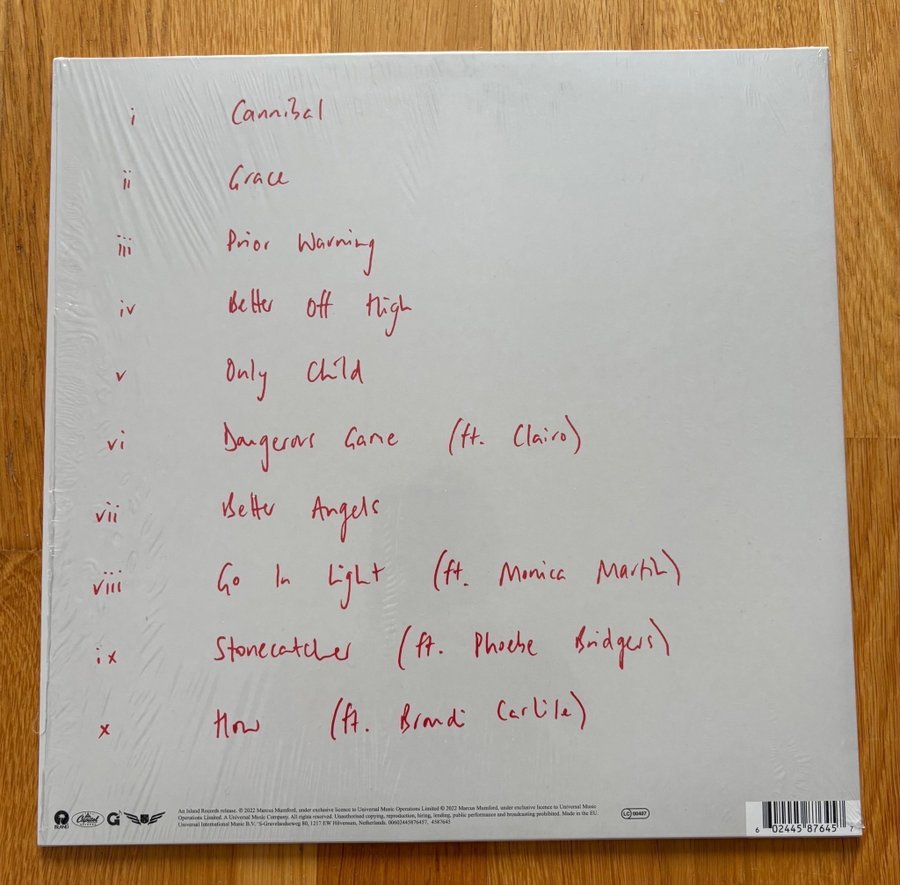 i Cannibal
ii Grace
iii Prior Warning
iv Better Off High
v Only Child
vi Dangerous Game (ft. Clairo)
vii Better Angels
viii Go In Light (ft. Monica Martin)
ix Stonecatcher (ft. Phoebe Bridgers)
x How (ft. Brandi Carlile)
ISLAND
Capitol
An Island Records release. ℗ 2022 Marcus Mumford, under exclusive licence to Universal Music Operations Limited © 2022 Marcus Mumford, under exclusive licence to Universal Music
Operations Limited. A Universal Music Company. All rights reserved. Unauthorised copying, reproduction, hiring, lending, public performance and broadcasting prohibited. Made in the EU.
Universal International Music B.V. 'S-Gravelandseweg 80, 1217 EW Hilversum, Netherlands. 00602445876457, 4587645
LC 00407
6 02445 87645 7